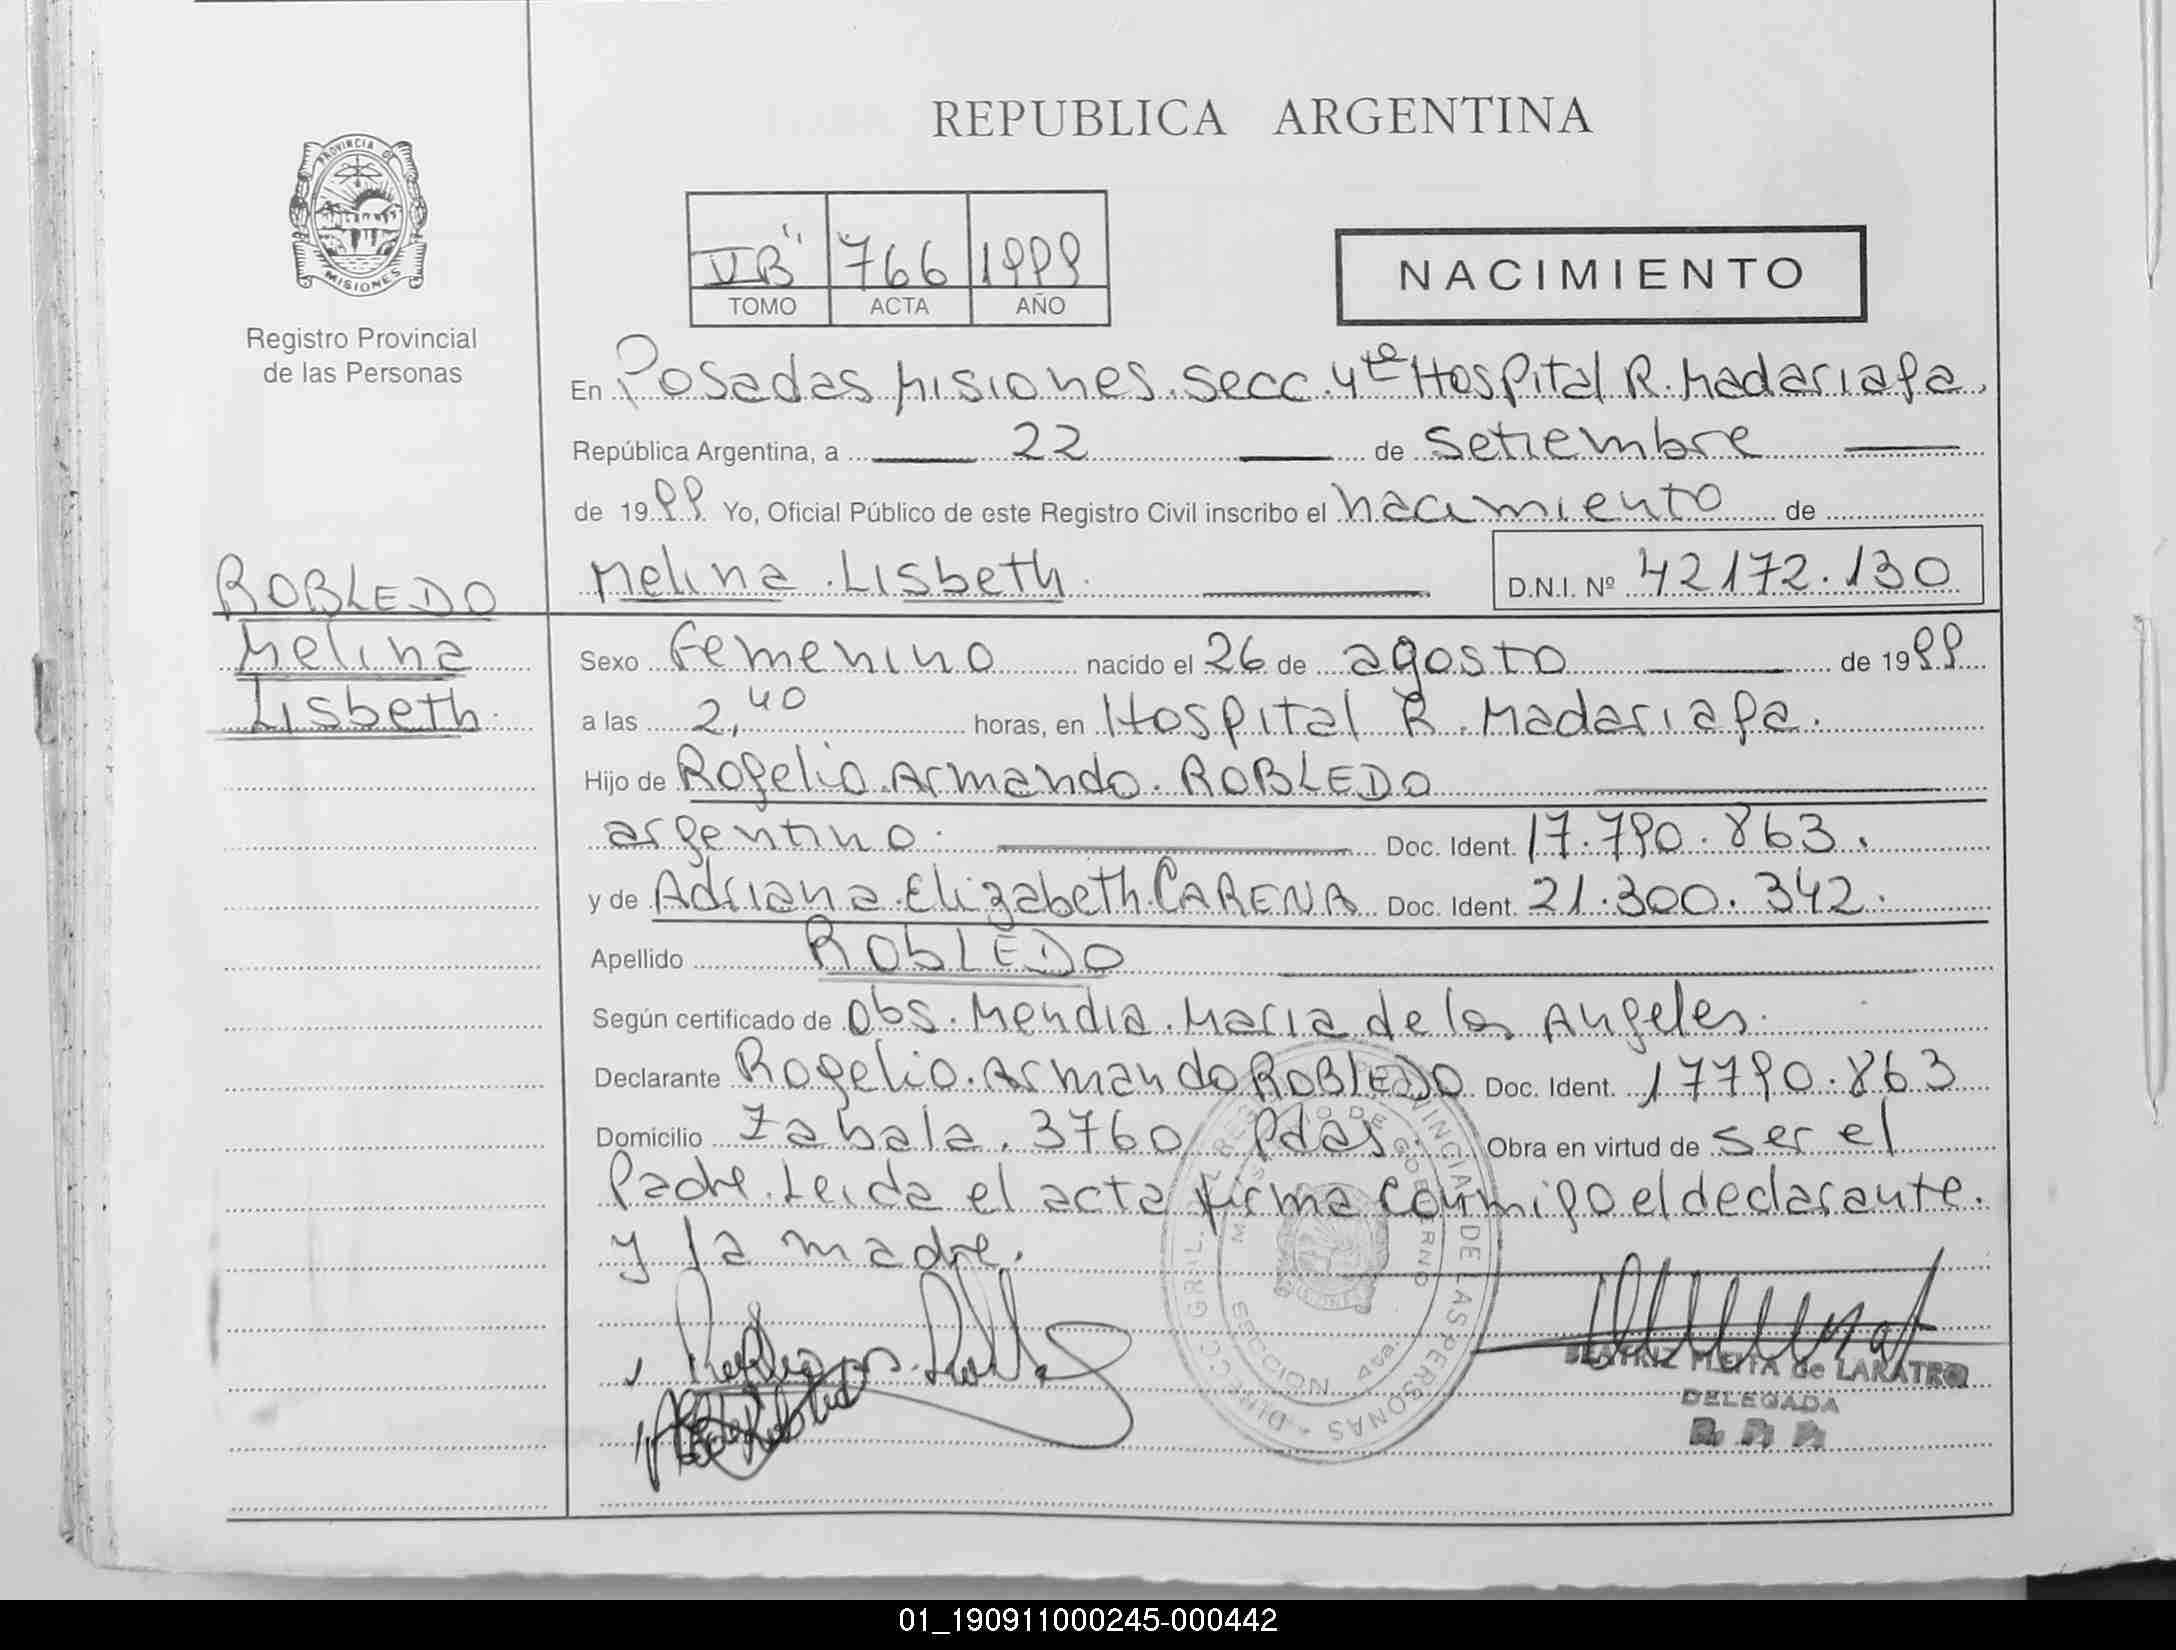 REPUBLICA ARGENTINA
PROVINCIA DE
MISIONES
Registro Provincial
de las Personas
VB" 766 1999
TOMO ACTA AÑO
NACIMIENTO
En Posadas Misiones. Secc. 4ta Hospital R. Madariaga.
República Argentina, a 22 de Setiembre
de 1999 Yo, Oficial Público de este Registro Civil inscribo el nacimiento de
Melina Lisbeth. D.N.I. Nº 42172.130
ROBLEDO
Melina
Lisbeth.
Sexo Femenino nacido el 26 de agosto de 1999
a las 2,40 horas, en Hospital R. Madariaga.
Hijo de Rogelio Armando. ROBLEDO
argentino. Doc. Ident. 17.790.863.
y de Adriana Elizabeth CARENA Doc. Ident. 21.300.342.
Apellido ROBLEDO
Según certificado de Obs. Mendia Maria de los Angeles.
Declarante Rogelio Armando ROBLEDO Doc. Ident. 17790.863
Domicilio Zabala. 3760 Pdas. Obra en virtud de ser el
Padre. Leida el acta firma conmigo el declarante.
y la madre.
BEATRIZ de LARATRO
DELEGADA
R. P. P.
01_190911000245-000442